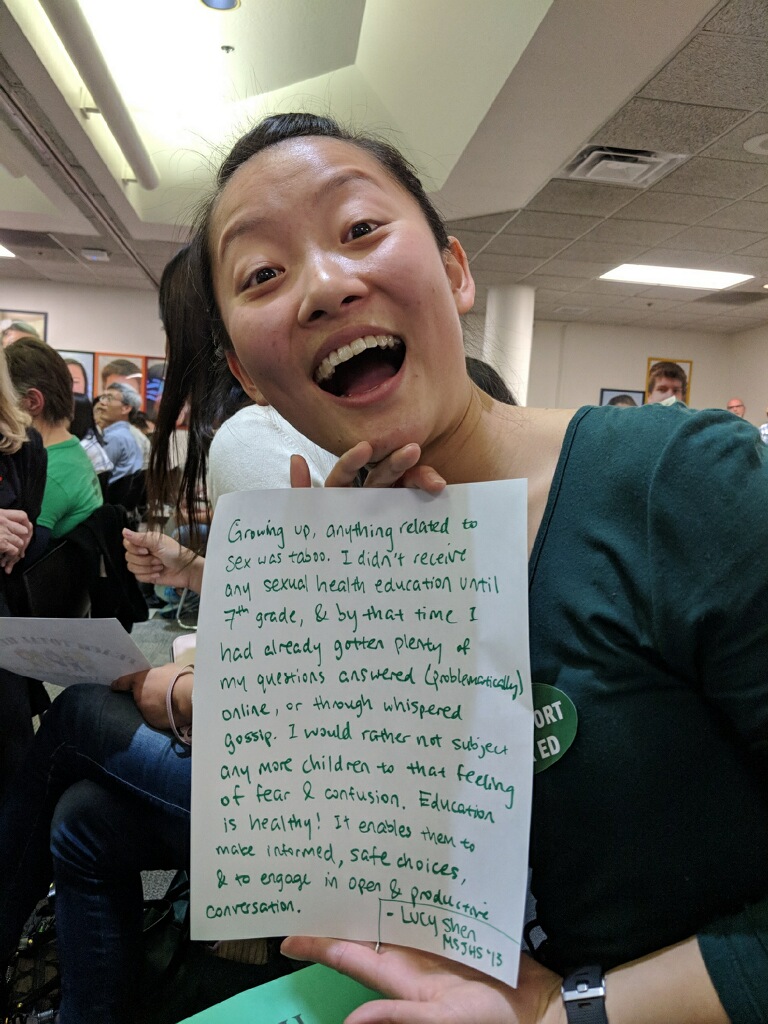 Growing up, anything related to
sex was taboo. I didn't receive
any sexual health education until
7th grade, & by that time I
had already gotten plenty of
my questions answered (problematically)
online, or through whispered
gossip. I would rather not subject
any more children to that feeling
of fear & confusion. Education
is healthy! It enables them to
make informed, safe choices,
& to engage in open & productive
conversation.
- Lucy Shen
MSJHS '13
ORT
ED